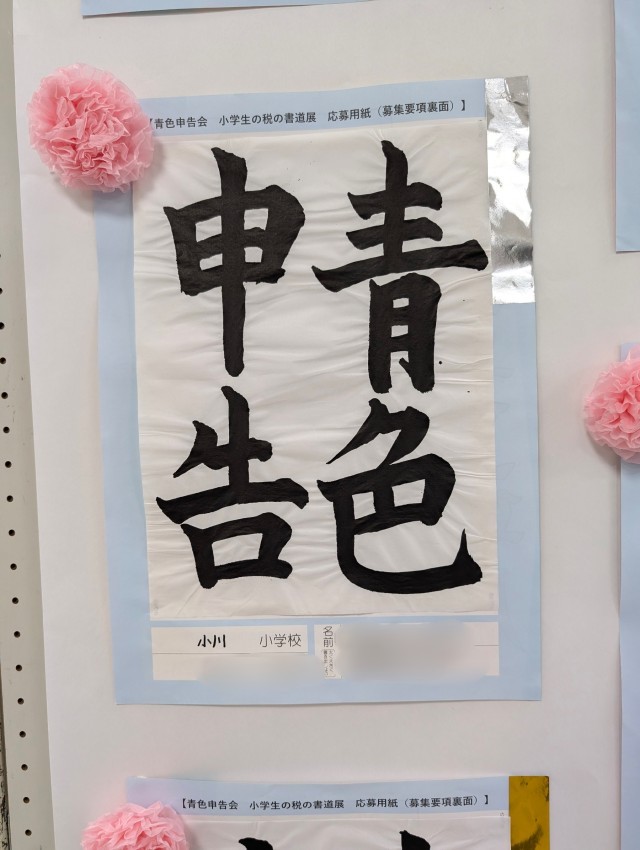 【青色申告会 小学生の税の書道展 応募用紙(募集要項裏面)】
青色
申告
小川 小学校
名前
【青色申告会 小学生の税の書道展 応募用紙(募集要項裏面)】